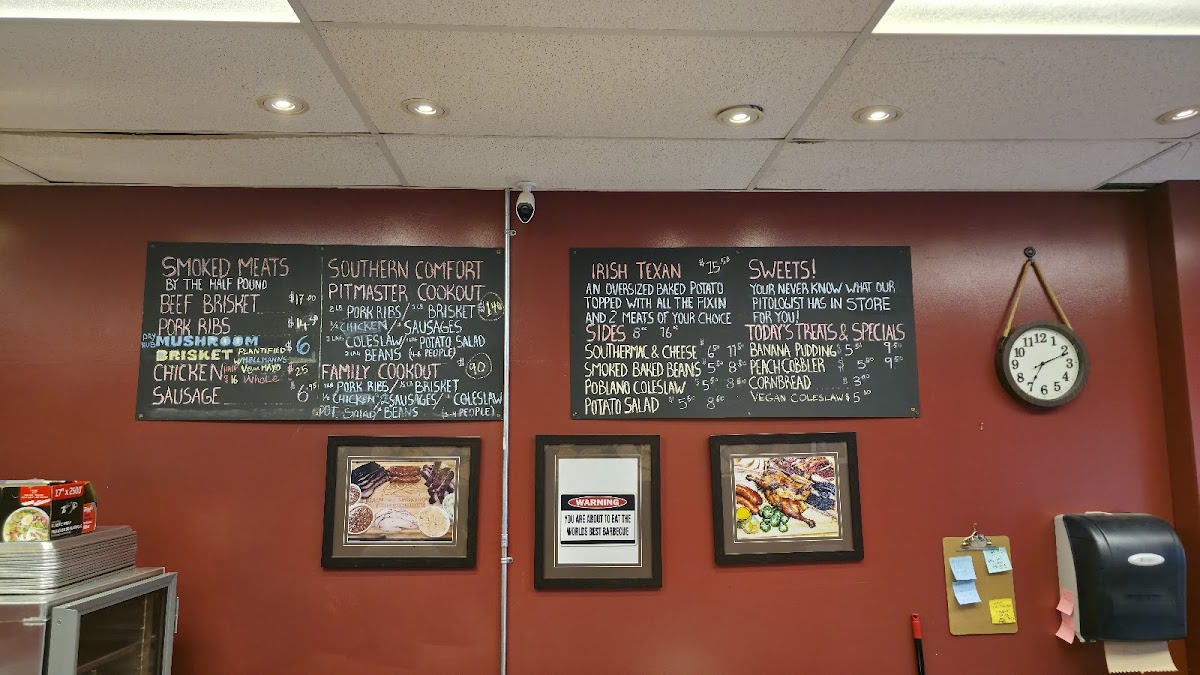 SMOKED MEATS
BY THE HALF POUND
BEEF BRISKET $17.00
PORK RIBS $14.50
DRY RUB MUSHROOM
BRISKET PLANTIFIED $6
W/HELLMANNS
Vegan MAYO
CHICKEN HALF $16 WHOLE $25
SAUSAGE $6.95
SOUTHERN COMFORT
PITMASTER COOKOUT
2 LB PORK RIBS/ BRISKET $140
CHICKEN/ SAUSAGES
2 LBS COLESLAW/ POTATO SALAD
2 LBS BEANS (4-6 PEOPLE)
FAMILY COOKOUT $90
PORK RIBS/ BRISKET
1/2 CHICKEN/2 SAUSAGES/ COLESLAW
POT. SALAD BEANS (3-4 PEOPLE)
IRISH TEXAN $15.50
AN OVERSIZED BAKED POTATO
TOPPED WITH ALL THE FIXIN
AND 2 MEATS OF YOUR CHOICE
SIDES 8oz 16oz
SOUTHERMAC & CHEESE $6.50 11.50
SMOKED BAKED BEANS $5.50
POBLANO COLESLAW $5.50
POTATO SALAD $5.50 8.50
SWEETS!
YOUR NEVER KNOW WHAT OUR
PITOLOGIST HAS IN STORE
FOR YOU!
TODAY'S TREATS & SPECIALS
BANANA PUDDING $5.50 9.50
PEACH COBBLER $5.50 9.50
CORNBREAD $3.00
VEGAN COLESLAW $5.50
12
1
2
3
4
5
6
7
8
9
10
11
WARNING
YOU ARE ABOUT TO EAT THE
WORLDS BEST BARBECUE
17" x 2500'